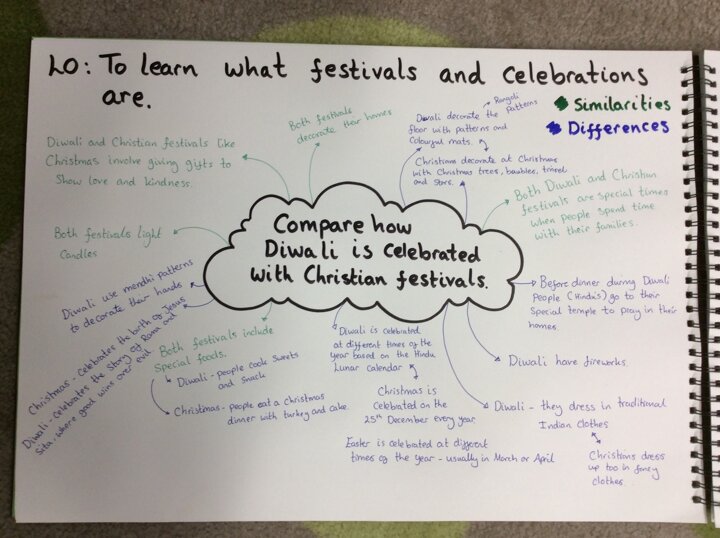 LO: To learn what festivals and celebrations
are.
Similarities
Differences
Both festivals
decorate their homes
Diwali decorate the
floor with patterns and
Colourful mats.
Rangoli
Patterns
Christians decorate at Christmas
with Christmas trees, baubles, tinsel
and stars.
Diwali and Christian festivals like
Christmas involve giving gifts to
Show love and kindness.
Both Diwali and Christian
festivals are special times
when people spend time
with their families.
Both festivals light
Candles
Compare how
Diwali is celebrated
with Christian festivals.
Diwali use mendhi patterns
to decorate their hands
Before dinner during Diwali
People (Hindus) go to their
Special temple to pray in their
homes.
Christmas - Celebrates the birth of Jesus
Diwali - Celebrates the Story of Rama and
Sita, where good wins over evil
Both festivals include
Special foods.
Diwali - people cook Sweets
and Snack
Christmas - people eat a Christmas
dinner with turkey and cake.
Diwali is celebrated
at different times of the
year based on the Hindu
Lunar calendar
Christmas is
Celebrated on the
25th December every year
Easter is celebrated at different
times of the year - usually in March or April
Diwali have fireworks
Diwali - they dress in traditional
Indian clothes
Christians dress
up too in fancy
clothes.